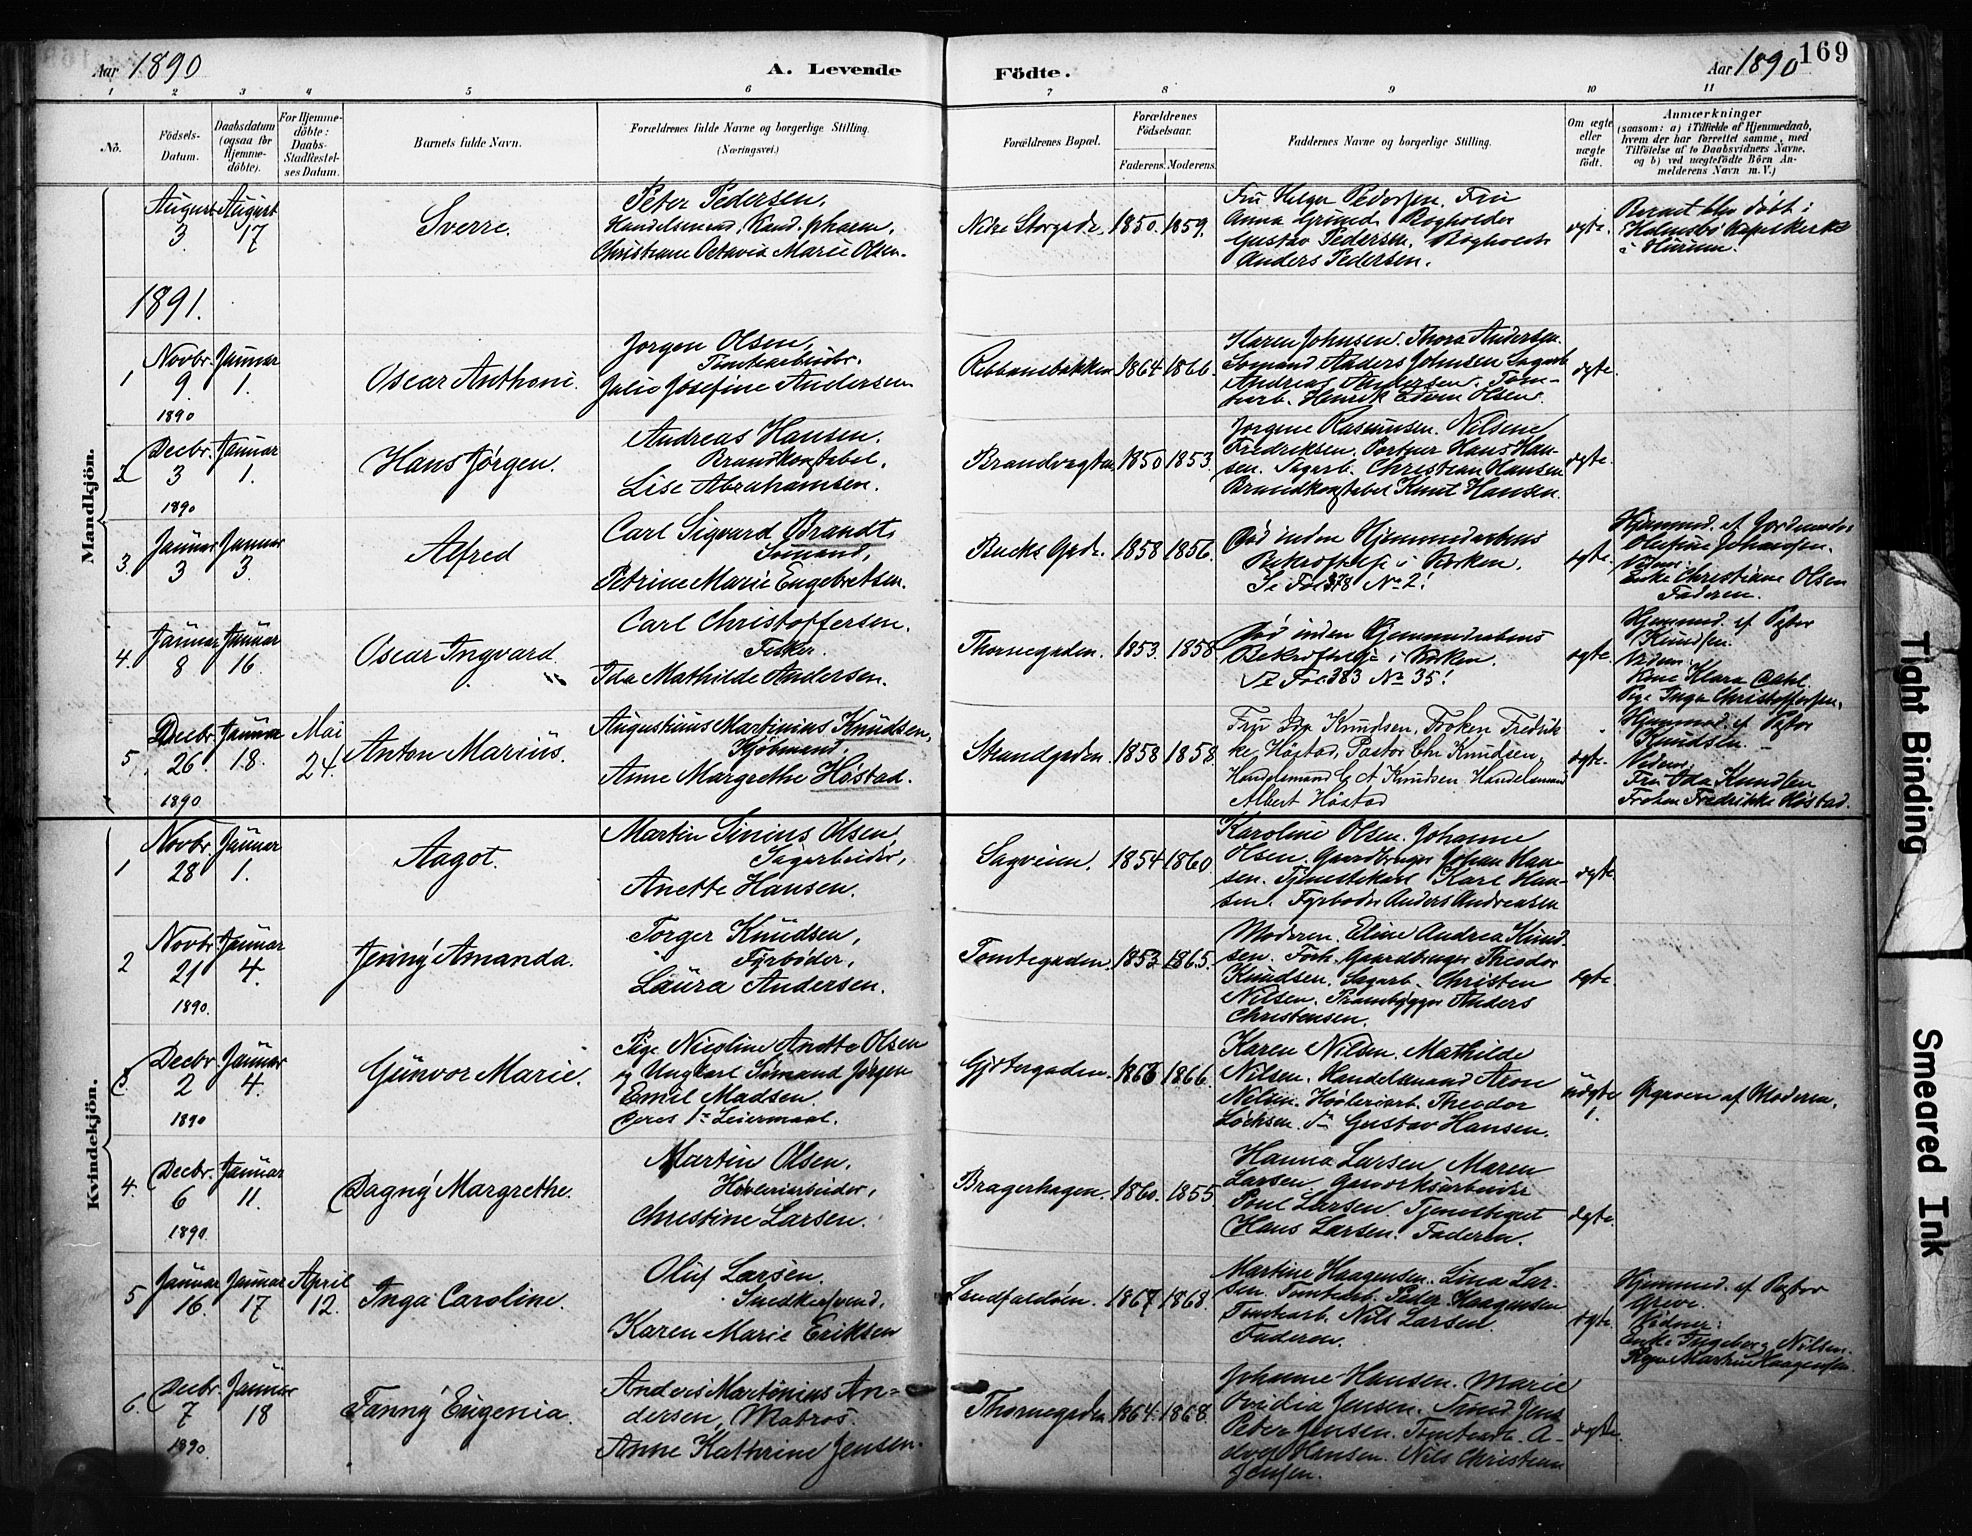 Aar 1890
A. Levende
Födte.
Aar 1890
169
1 2 3 4 5 6 7 8 9 10 11
No.
Födsels-
Datum.
Daabsdatum
(ogsaa for
Hjemme-
döbte).
For Hjemme-
döbte:
Daabs-
Stadfæstel-
ses Datum.
Barnets fulde Navn.
Forældrenes fulde Navne og borgerlige Stilling.
(Næringsvei.)
Forældrenes Bopæl.
Forældrenes
Födselsaar.
Faderens. Moderens.
Faddernes Navne og borgerlige Stilling.
Om ægte
eller
uægte
födt.
Anmærkninger
(saasom: a) i Tilfælde af Hjemmedaab,
hvem der har forrettet samme, med
Tilföielse af to Daabsvidners Navne,
og b) ved uægtefödte Börn An-
melderens Navn m. V.)
August 3
August 17
Sverre.
Peter Pedersen,
Handelsmand,
Christiane Octavia Marie Olsen.
Nedre Storgade
1850. 1859.
Fru Helga Pedersen. Fru
Anna Grund. Bogholder
Gustav Pedersen. Bogholder
Anders Pedersen.
ægte.
Barnet blev döbt i
Holmsbo Kapelkirke
i Hurum.
1891.
Mandkjön.
1
Novbr. 9 1890
Januar 1.
Oscar Anthoni.
Jorgen Olsen,
Tomtearbeider.
Julie Josefine Andersen
Ribbanebakken
1864 1866.
Karen Johnsen. Thora Andersen.
Sømand Anders Johnsen Sagarb.
Andreas Andersen. Tom-
tearb. Henrik Edvin Olsen.
ægte.
2
Decbr. 3 1890
Januar 1.
Hans Jørgen.
Andreas Hansen.
Brandkonstabel.
Lise Abrahamsen.
Brandvagten
1850 1853.
Jorgine Rasmusen. Nilsine
Fredriksen. Portner Hans Han-
sen. Sagarb. Christian Hansen
Brandkonstabel Knut Hansen.
ægte.
3.
Januar 3
Januar 3.
Alfred
Carl Sigvard Brandt,
Sømand,
Petrine Marie Engebretsen.
Bucks Gade.
1858 1856.
Død inden Hjemmedaabens
Bekræftelse i Kirken.
Se Fol 378 No 2!
ægte.
Hjemmed. af Jordmoder
Olufine Johansen.
Vidner:
Enke Christiane Olsen
Faderen.
4.
Januar 8
Januar 16.
Oscar Ingvard
Carl Christoffersen.
Fisker.
Ida Mathilde Andersen.
Thornegaden.
1853. 1858
Død inden Hjemmedaabens
Bekræftelse i Kirken.
Se Fol. 383 No 35!
ægte.
Hjemmed. af Pastor
Knudsen.
Vidner:
Kone Klara Dahl
Pige Inga Christoffersen.
5
Decbr. 26. 1890
Januar 18.
Mai 24.
Anton Marius.
Augustinus Martinius Knudsen,
Kjøbmand.
Anne Margrethe Høstad.
Strandgaden.
1858 1858.
Knudsen, Frøken Fredrik-
ke Höstad, Pastor Chr Knudsen,
Handelsmand C A Knudsen Handelsmand
Albert Höstad
ægte.
Hjemmed. af Pastor
Knudsen.
Vidner:
Fru Oda Knudsen
Frøken Fredrikke Høstad.
Kvindekjön.
1
Novbr. 28
Januar 1.
Aagot.
Martin Sinius Olsen,
Sagarbeider,
Anette Hansen.
Sagveien.
1854 1860.
Karoline Olsen. Johanne
Olsen. Gaardbruger Johan Han-
sen. Tjenestekarl Karl Han-
sen. Fyrbøder Anders Andreasen
ægte.
2
Novbr. 21 1890.
Januar 4.
Jenny Amanda.
Torger Knudsen,
Fyrbøder,
Laura Andersen.
Tomtegaden.
1853 1865.
Moderen. Eline Andrea Knud-
sen. Forh. Gaardbruger Theodor
Knudsen. Sagarb. Christen
Nilsen. Prambygger Anders
Christensen.
ægte.
3
Decbr. 2 1890
Januar 4.
Gunvor Marie.
Pige Nicoline Anette Olsen
og Ungkarl Sømand Jørgen
Emil Madsen.
Deres 1ste Leiermaal.
Gjetergaden.
1866 1866.
Karen Nilsen. Mathilde
Nilsen. Handelsmand Aron
Nilsen. Høvleriarb. Theodor
Løchsen. Gustav Hansen.
uægte!
Opgivere af Moderen.
4.
Decbr. 6 1890
Januar 11.
Dagny Margrethe.
Martin Olsen.
Høvleriarbeider,
Christine Larsen.
Bragerhagen.
1860. 1855
Hanna Larsen. Maren
Larsen. Gasværksarbeider
Poul Larsen.
Hans Larsen. Faderen.
ægte.
5
Januar 16.
Januar 17
April 12.
Inga Caroline.
Oluf Larsen.
Snedkersvend,
Karen Marie Eriksen
Sandfaldøen.
1867 1868.
Martine Haagensen. Lina Lar-
sen. Tomtearb. Peder Haagensen
Tomtearb. Nils Larsen.
Faderen.
ægte.
Hjemmed. af Pastor
Greve.
Vidner:
Enke Ingeborg Nilsen.
Martine Haagensen.
6.
Decbr. 7 1890.
Januar 18
Fanny Eugenia.
Anders Martinius An-
dersen, Matros.
Anne Kathrine Jensen.
Thornegaden
1864. 1868.
Johanne Hansen. Marie
Ovidia Jensen.
Peter Jensen. Tomtearb. A-
dolf Hansen. Nils Christian
Jensen.
ægte.
Tight Binding
Smeared Ink